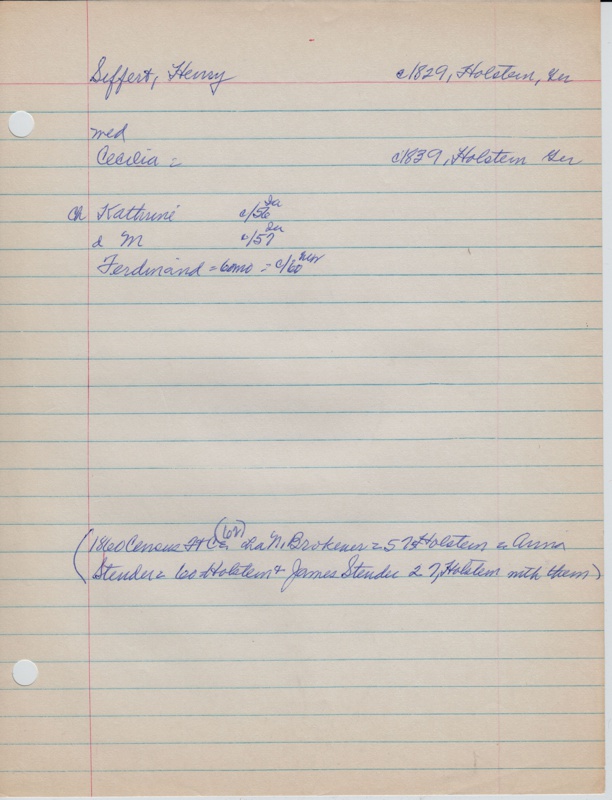 Seffert, Henry c1829, Holstein, Ger
med
Cecilia = c1839, Holstein Ger
ch Kathrine c/56 Ia
d M c/57 Ia
Ferdinand = 6mo = c/60
(1860 Census (62) Brokener = 57 Holstein = Anna
Stender = 60 = Holstein + James Stender 27, Holstein with them)